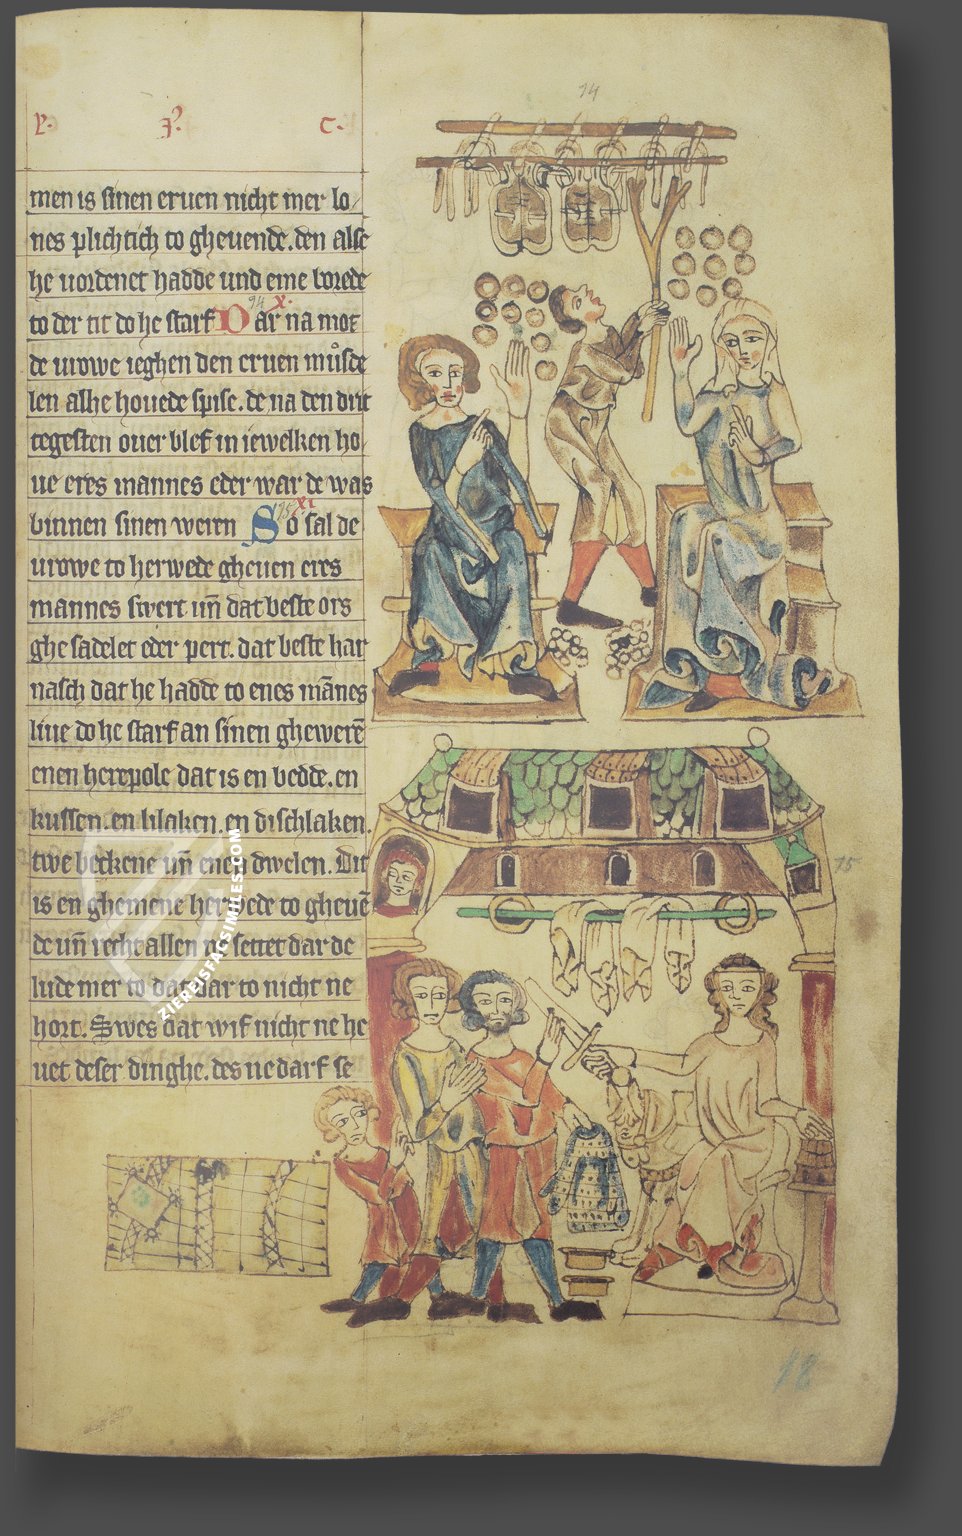 P. J. C.
14
men is sinen eruen nicht mer lo/
nes plichtich to gheuende. den alse
he uordenet hadde und eme lorede
to der tit do he starf Dar na mot
94 X.
de urowe ieghen den eruen můsde
len alhe houede spise. de na den drit
tegesten ouer blef in iewelken ho/
ue eres mannes eder war de was
binnen sinen wern So sal de
XI
urowe to herwede gheuen eres
mannes swert uñ dat beste ors
ghe sadelet eder pert. dat beste har
nasch dat he hadde to enes mānes
liue do he starf an sinen ghewerē
enen herepole dat is en bedde. en
kussen. en lilaken. en dischlaken.
twe beckene uñ enen dwelen. Dit
is en ghemene herwede to gheuē
de uñ recht allen ne settet dar de
lude mer to dat dar to nicht ne
hort. Swes dat wif nicht ne he
uet deser dinghe. des ne darf se
15
18
ZIEREISFACSIMILES.COM